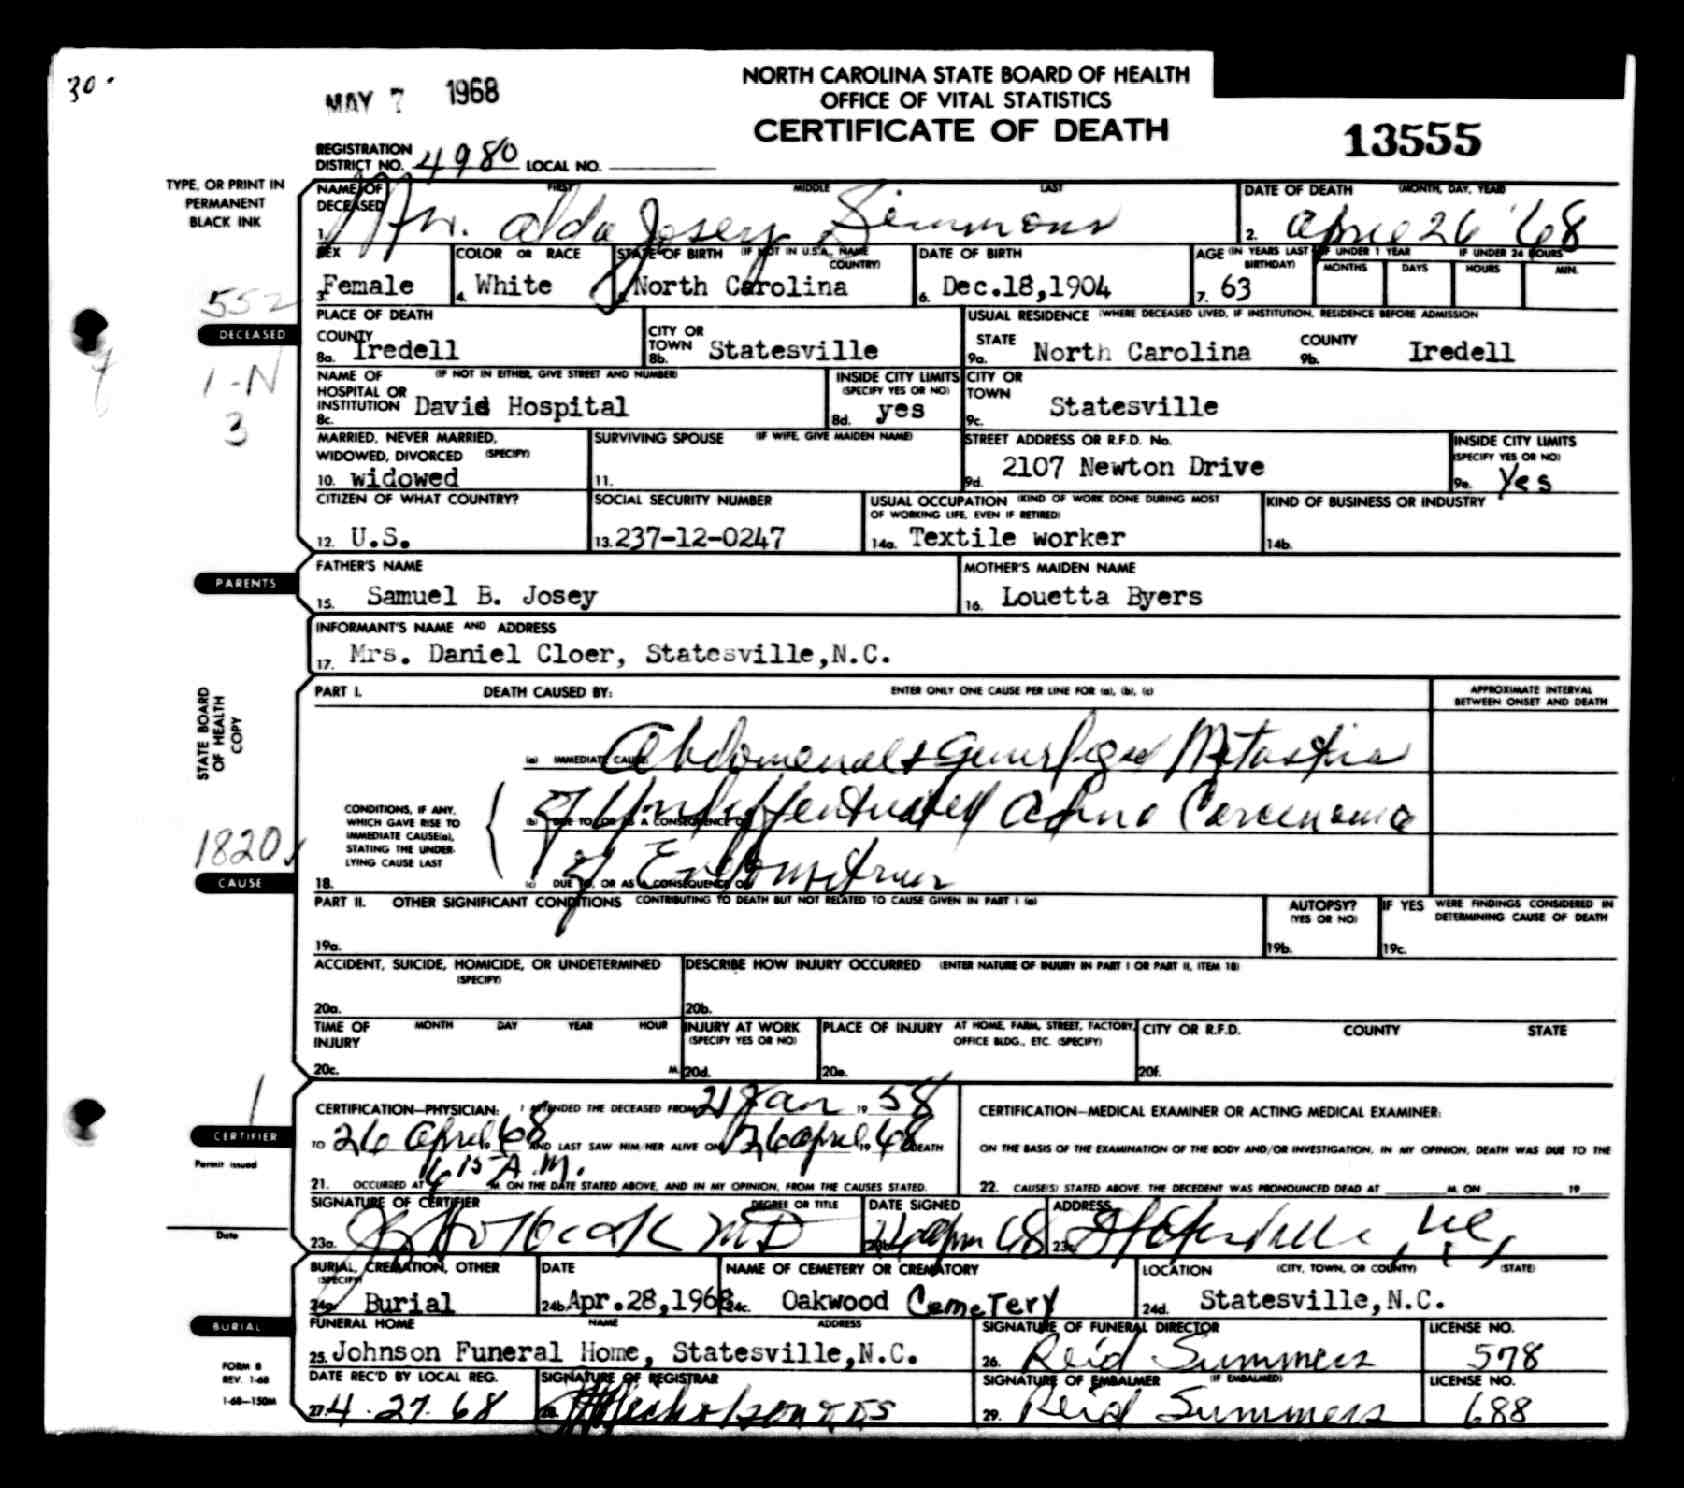 30.
MAY 7 1968
NORTH CAROLINA STATE BOARD OF HEALTH
OFFICE OF VITAL STATISTICS
CERTIFICATE OF DEATH
13555
REGISTRATION DISTRICT NO. 4980 LOCAL NO.
TYPE, OR PRINT IN PERMANENT BLACK INK
NAME OF DECEASED FIRST MIDDLE LAST
1. Alda Josey Simmons
DATE OF DEATH (MONTH, DAY, YEAR)
2. April 26 '68
SEX
3. Female
COLOR OR RACE
4. White
STATE OF BIRTH (IF NOT IN U.S.A., NAME COUNTRY)
North Carolina
DATE OF BIRTH
6. Dec.18,1904
AGE (IN YEARS LAST BIRTHDAY)
7. 63
IF UNDER 1 YEAR MONTHS DAYS
IF UNDER 24 HOURS HOURS MIN.
552
DECEASED
1-N
3
PLACE OF DEATH
COUNTY
8a. Iredell
CITY OR TOWN
8b. Statesville
USUAL RESIDENCE (WHERE DECEASED LIVED, IF INSTITUTION, RESIDENCE BEFORE ADMISSION
STATE
9a. North Carolina
COUNTY
9b. Iredell
NAME OF HOSPITAL OR INSTITUTION (IF NOT IN EITHER, GIVE STREET AND NUMBER)
8c. Davis Hospital
INSIDE CITY LIMITS (SPECIFY YES OR NO)
8d. yes
CITY OR TOWN
9c. Statesville
MARRIED, NEVER MARRIED, WIDOWED, DIVORCED (SPECIFY)
10. widowed
SURVIVING SPOUSE (IF WIFE, GIVE MAIDEN NAME)
11.
STREET ADDRESS OR R.F.D. No.
9d. 2107 Newton Drive
INSIDE CITY LIMITS (SPECIFY YES OR NO)
9e. Yes
CITIZEN OF WHAT COUNTRY?
12. U.S.
SOCIAL SECURITY NUMBER
13. 237-12-0247
USUAL OCCUPATION (KIND OF WORK DONE DURING MOST OF WORKING LIFE, EVEN IF RETIRED)
14a. Textile worker
KIND OF BUSINESS OR INDUSTRY
14b.
PARENTS
FATHER'S NAME
15. Samuel B. Josey
MOTHER'S MAIDEN NAME
16. Louetta Byers
INFORMANT'S NAME AND ADDRESS
17. Mrs. Daniel Cloer, Statesville,N.C.
STATE BOARD OF HEALTH COPY
PART I. DEATH CAUSED BY: ENTER ONLY ONE CAUSE PER LINE FOR (a), (b), (c)
APPROXIMATE INTERVAL BETWEEN ONSET AND DEATH
(a) IMMEDIATE CAUSE Abdomenal + Generalized Metastasis
CONDITIONS, IF ANY, WHICH GAVE RISE TO IMMEDIATE CAUSE(a), STATING THE UNDERLYING CAUSE LAST
(b) DUE TO, OR AS A CONSEQUENCE OF of Undifferentiated Adeno Carcinoma
(c) DUE TO, OR AS A CONSEQUENCE OF of Endometrium
18.
1820
CAUSE
PART II. OTHER SIGNIFICANT CONDITIONS CONTRIBUTING TO DEATH BUT NOT RELATED TO CAUSE GIVEN IN PART I (a)
19a.
AUTOPSY? (YES OR NO)
19b.
IF YES WERE FINDINGS CONSIDERED IN DETERMINING CAUSE OF DEATH
19c.
ACCIDENT, SUICIDE, HOMICIDE, OR UNDETERMINED (SPECIFY)
20a.
DESCRIBE HOW INJURY OCCURRED (ENTER NATURE OF INJURY IN PART I OR PART II, ITEM 18)
20b.
TIME OF INJURY MONTH DAY YEAR HOUR
20c. M.
INJURY AT WORK (SPECIFY YES OR NO)
20d.
PLACE OF INJURY AT HOME, FARM, STREET, FACTORY, OFFICE BLDG., ETC. (SPECIFY)
20e.
CITY OR R.F.D. COUNTY STATE
20f.
1
CERTIFIER
Permit issued
Date
CERTIFICATION—PHYSICIAN: I ATTENDED THE DECEASED FROM 21 Jan 19 58
TO 26 April 68 AND LAST SAW HIM/HER ALIVE ON 26 April 19 68 DEATH
6 15 A.M.
21. OCCURRED AT M. ON THE DATE STATED ABOVE, AND IN MY OPINION, FROM THE CAUSES STATED.
CERTIFICATION—MEDICAL EXAMINER OR ACTING MEDICAL EXAMINER:
ON THE BASIS OF THE EXAMINATION OF THE BODY AND/OR INVESTIGATION, IN MY OPINION, DEATH WAS DUE TO THE
22. CAUSE(S) STATED ABOVE. THE DECEDENT WAS PRONOUNCED DEAD AT M. ON 19
SIGNATURE OF CERTIFIER DEGREE OR TITLE
23a. MD
DATE SIGNED
68
ADDRESS
23c. Statesville, N.C.
BURIAL, CREMATION, OTHER (SPECIFY)
24a. Burial
DATE
24b. Apr.28,1968
NAME OF CEMETERY OR CREMATORY
24c. Oakwood Cemetery
LOCATION (CITY, TOWN, OR COUNTY) (STATE)
24d. Statesville,N.C.
BURIAL
FUNERAL HOME NAME ADDRESS
25. Johnson Funeral Home, Statesville,N.C.
SIGNATURE OF FUNERAL DIRECTOR
26. Reid Summers
LICENSE NO.
578
FORM 8
REV. 1-68
1-68—150M
DATE REC'D BY LOCAL REG.
27. 4.27.68
SIGNATURE OF REGISTRAR
SIGNATURE OF EMBALMER (IF EMBALMED)
29. Reid Summers
LICENSE NO.
688